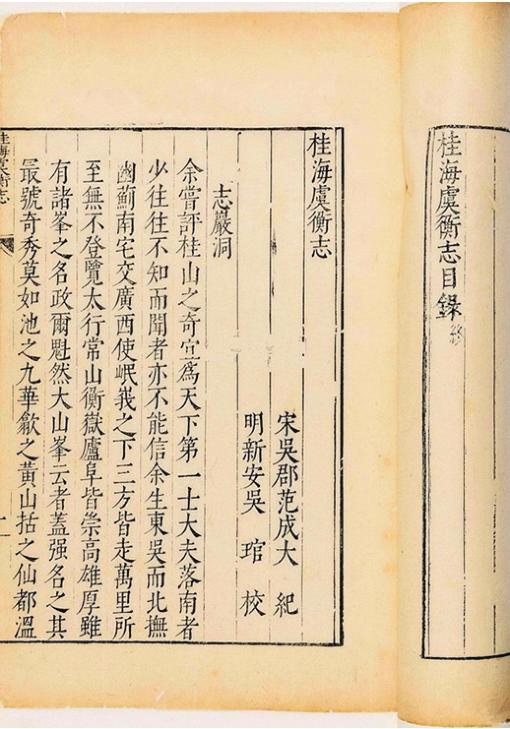 桂海虞衡志目錄終
桂海虞衡志
宋吳郡范成大紀
明新安吳琯校
志巖洞
余嘗評桂山之奇宜爲天下第一士大夫落南者
少往往不知而聞者亦不能信余生東吳而北撫
幽薊南宅交廣西使岷峩之下三方皆走萬里所
至無不登覽太行常山衡嶽廬阜皆崇高雄厚雖
有諸峯之名政爾魁然大山峯云者蓋强名之其
最號奇秀莫如池之九華歙之黃山括之仙都溫
桂海虞衡志
一